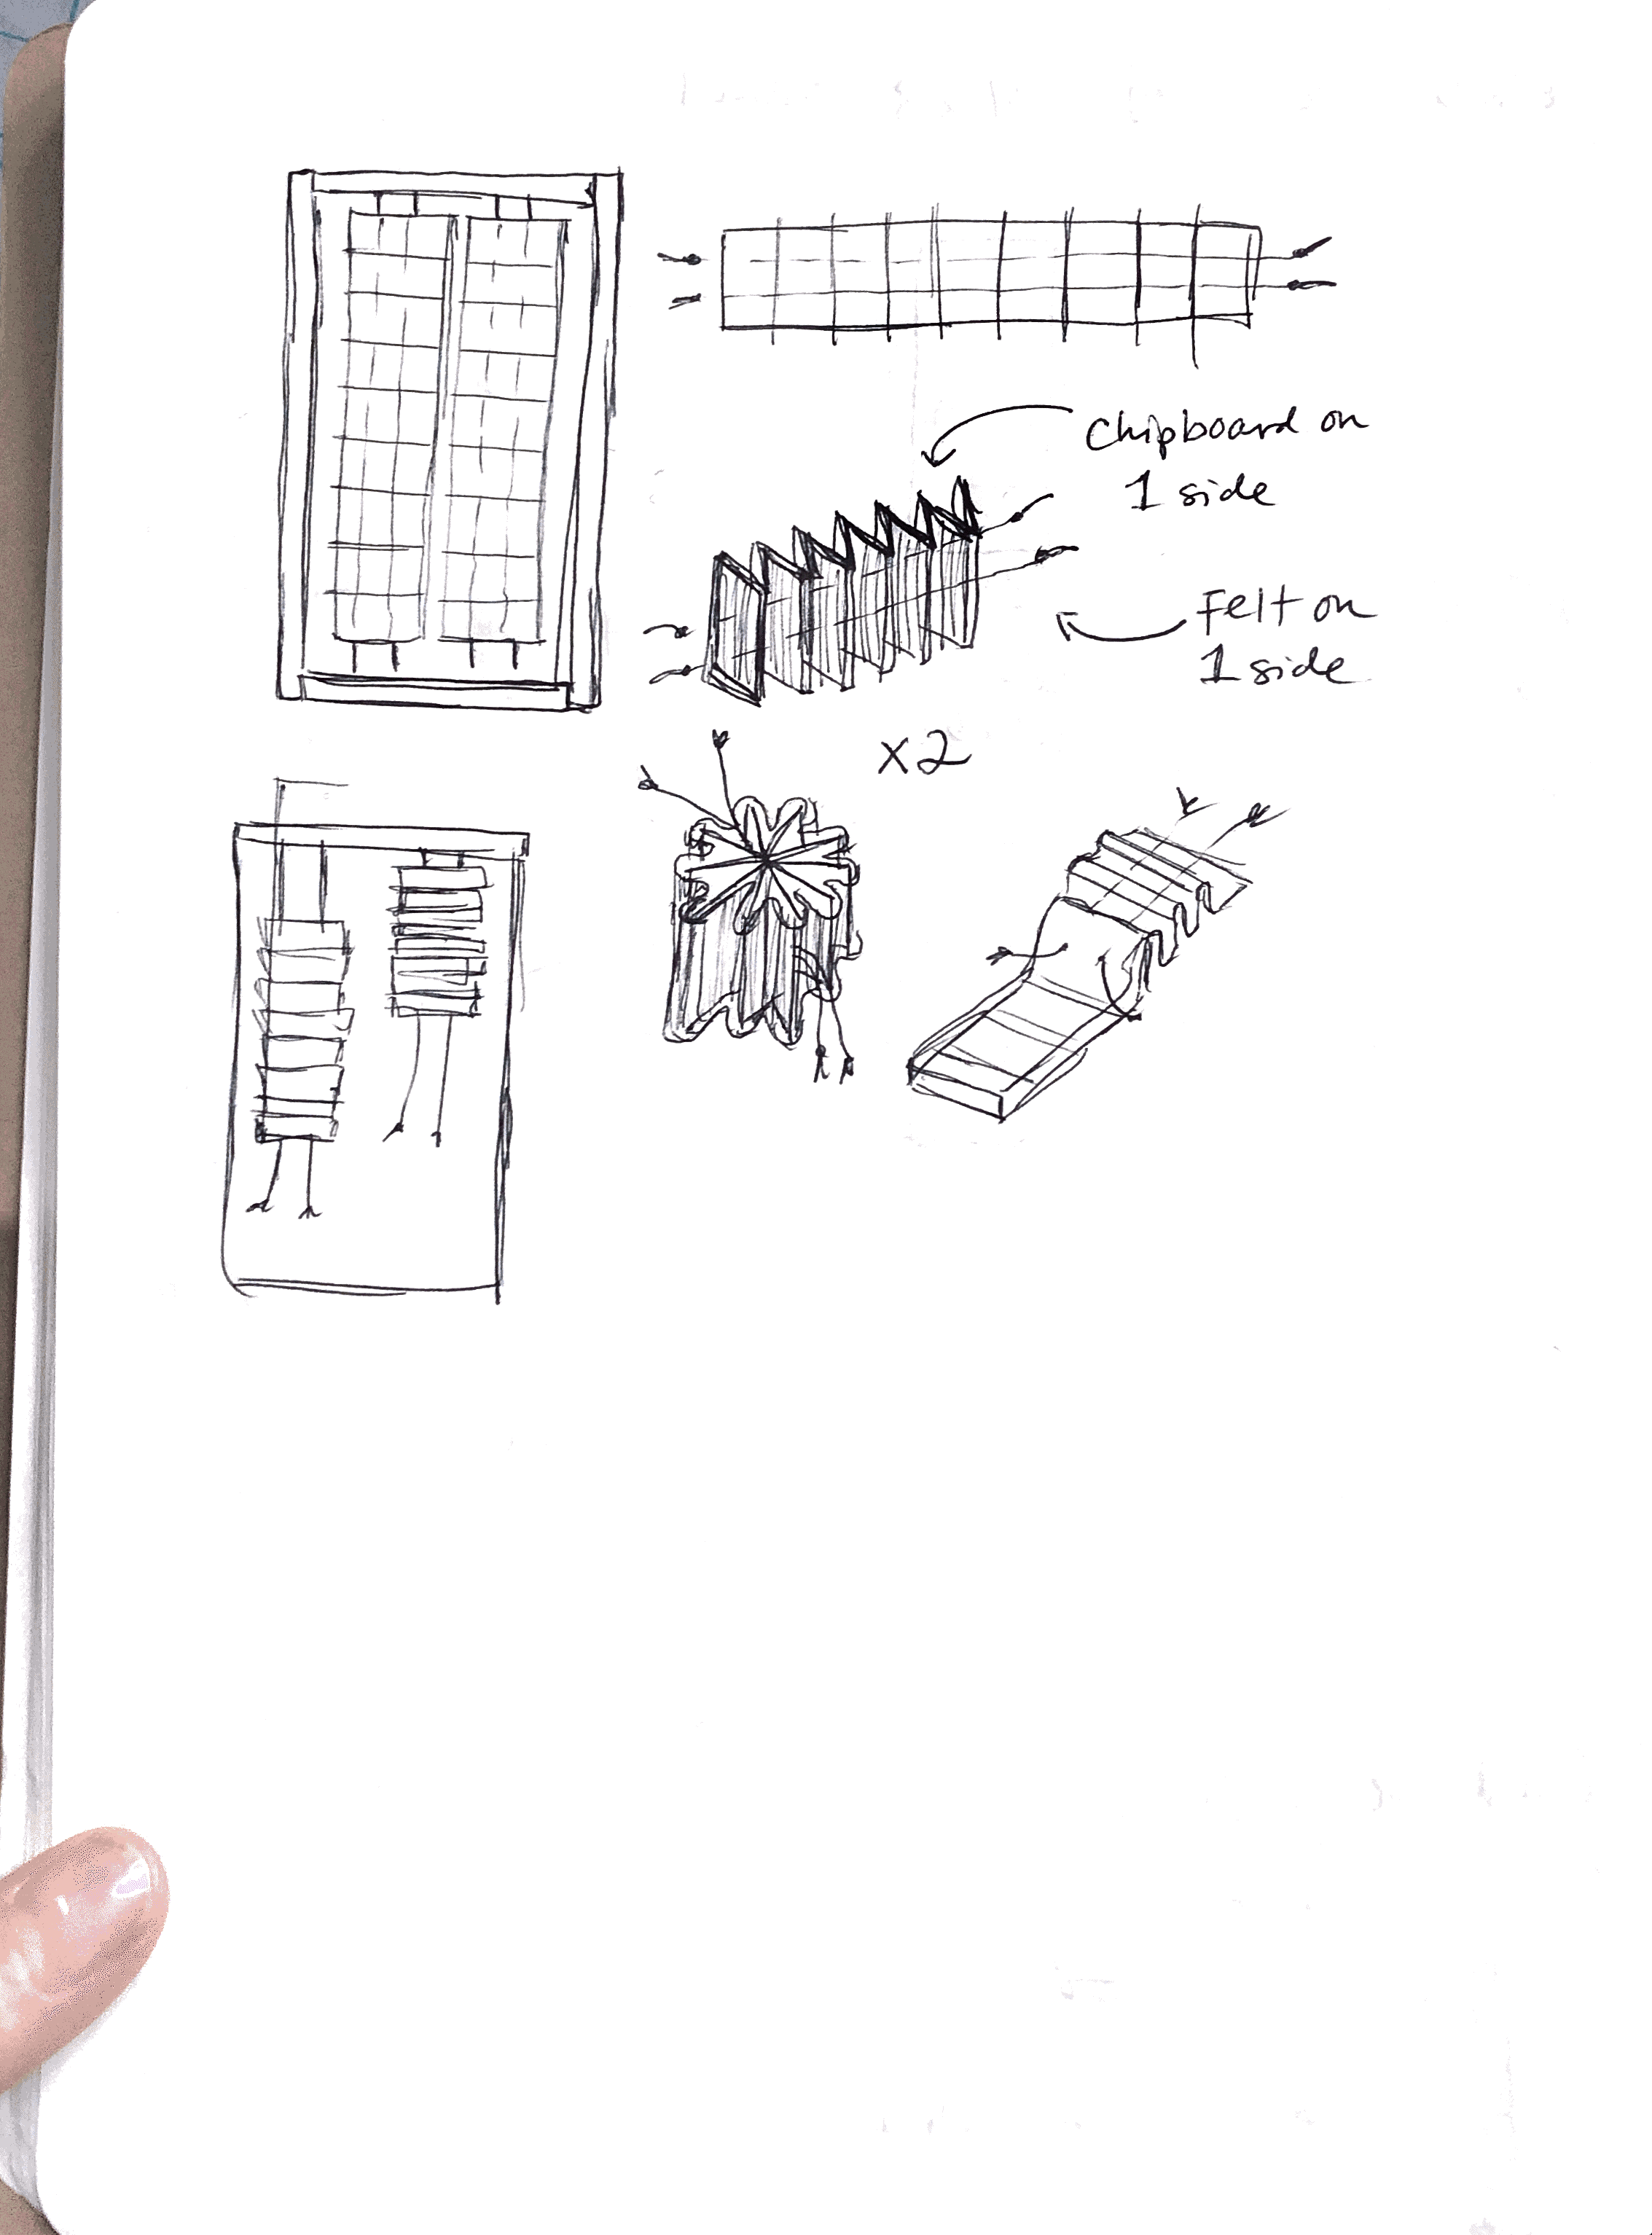 Chipboard on
1 side
Felt on
1 side
x2